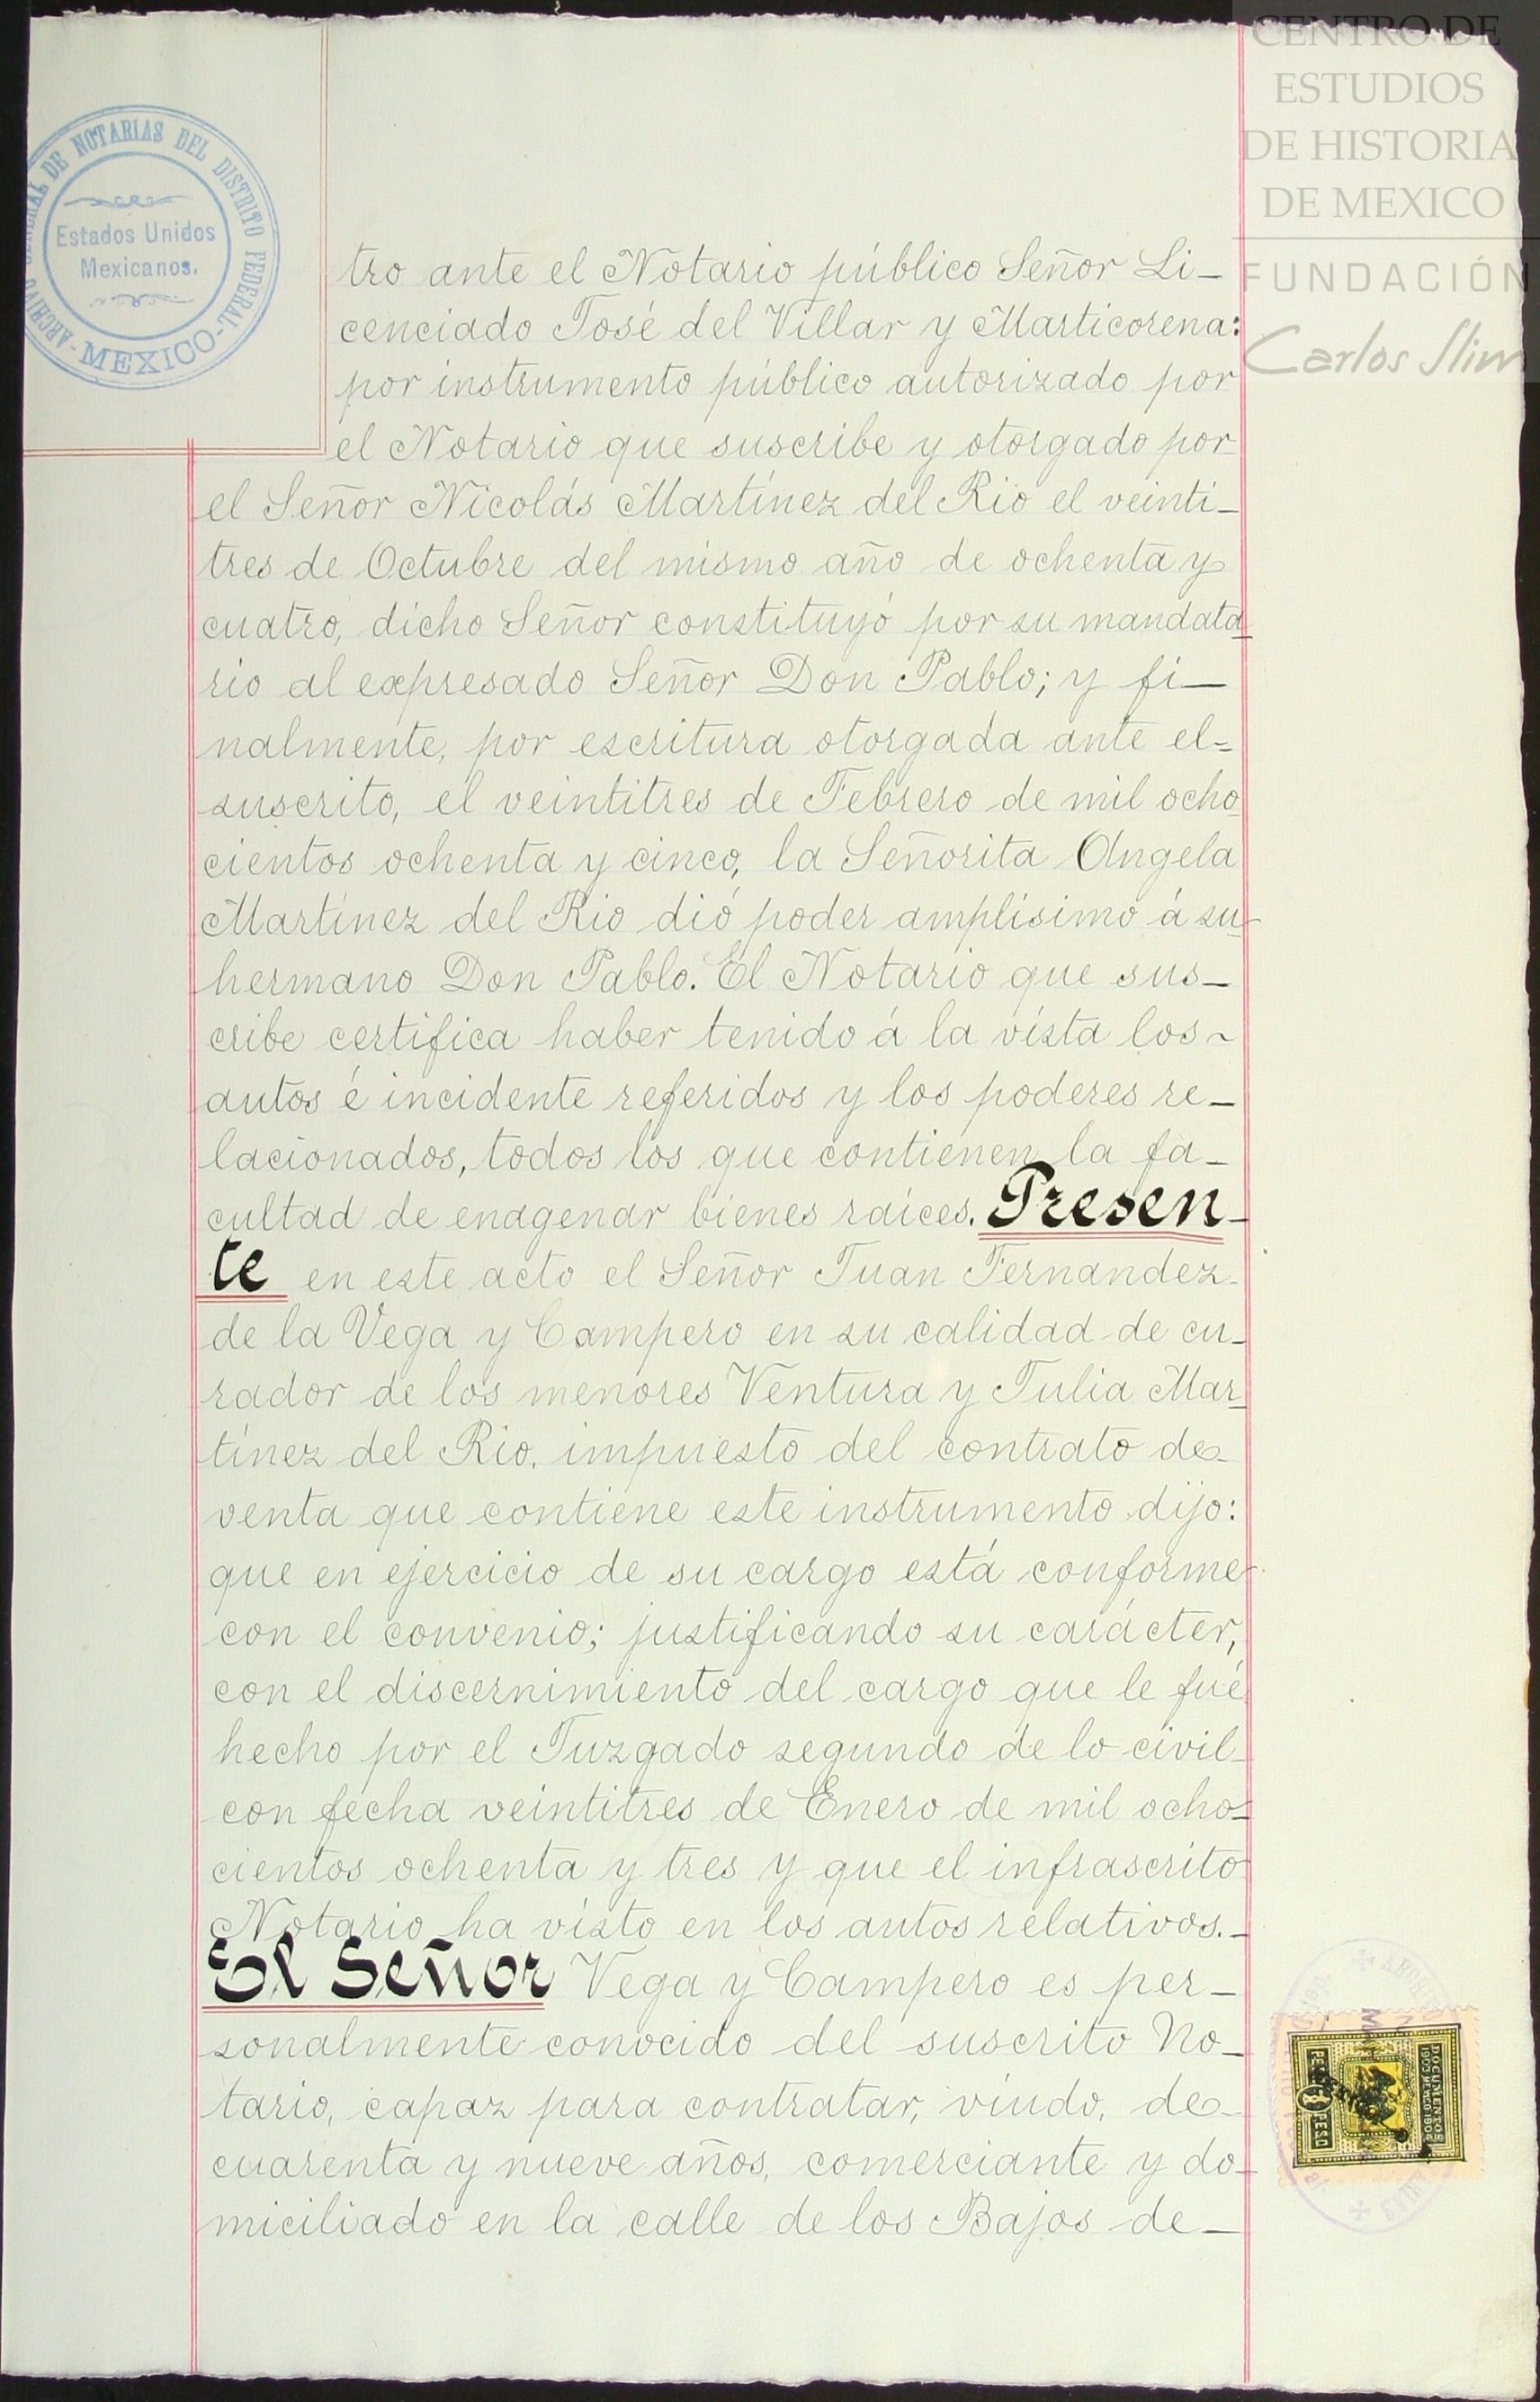 CENTRO DE
ESTUDIOS
DE HISTORIA
DE MEXICO
FUNDACIÓN
Carlos Slim
ARCHIVO GENERAL DE NOTARIAS DEL DISTRITO FEDERAL
-MEXICO-
Estados Unidos
Mexicanos.
tro ante el Notario público Señor Li-
cenciado José del Villar y Marticorena:
por instrumento público autorizado por
el Notario que suscribe y otorgado por
el Señor Nicolás Martínez del Rio el veinti-
tres de Octubre del mismo año de ochenta y
cuatro, dicho Señor constituyó por su mandata
rio al expresado Señor Don Pablo; y fi-
nalmente, por escritura otorgada ante el=
suscrito, el veintitres de Febrero de mil ocho
cientos ochenta y cinco, la Señorita Angela
Martínez del Rio dió poder amplísimo á su
hermano Don Pablo. El Notario que sus-
cribe certifica haber tenido á la vista los~
autos é incidente referidos y los poderes re-
lacionados, todos los que contienen la fa-
cultad de enagenar bienes raíces. Presen-
te en este acto el Señor Juan Fernandez
de la Vega y Campero en su calidad de cu-
rador de los menores Ventura y Julia Mar
tínez del Rio, impuesto del contrato de
venta que contiene este instrumento dijo:
que en ejercicio de su cargo está conforme
con el convenio; justificando su carácter,
con el discernimiento del cargo que le fué
hecho por el Juzgado segundo de lo civil
con fecha veintitres de Enero de mil ocho-
cientos ochenta y tres y que el infrascrito
Notario ha visto en los autos relativos.-
El Señor Vega y Campero es per-
sonalmente conocido del suscrito No-
tario, capaz para contratar, viudo, de
cuarenta y nueve años, comerciante y do-
miciliado en la calle de los Bajos de-
DOCUMENTOS
PESO
PESO